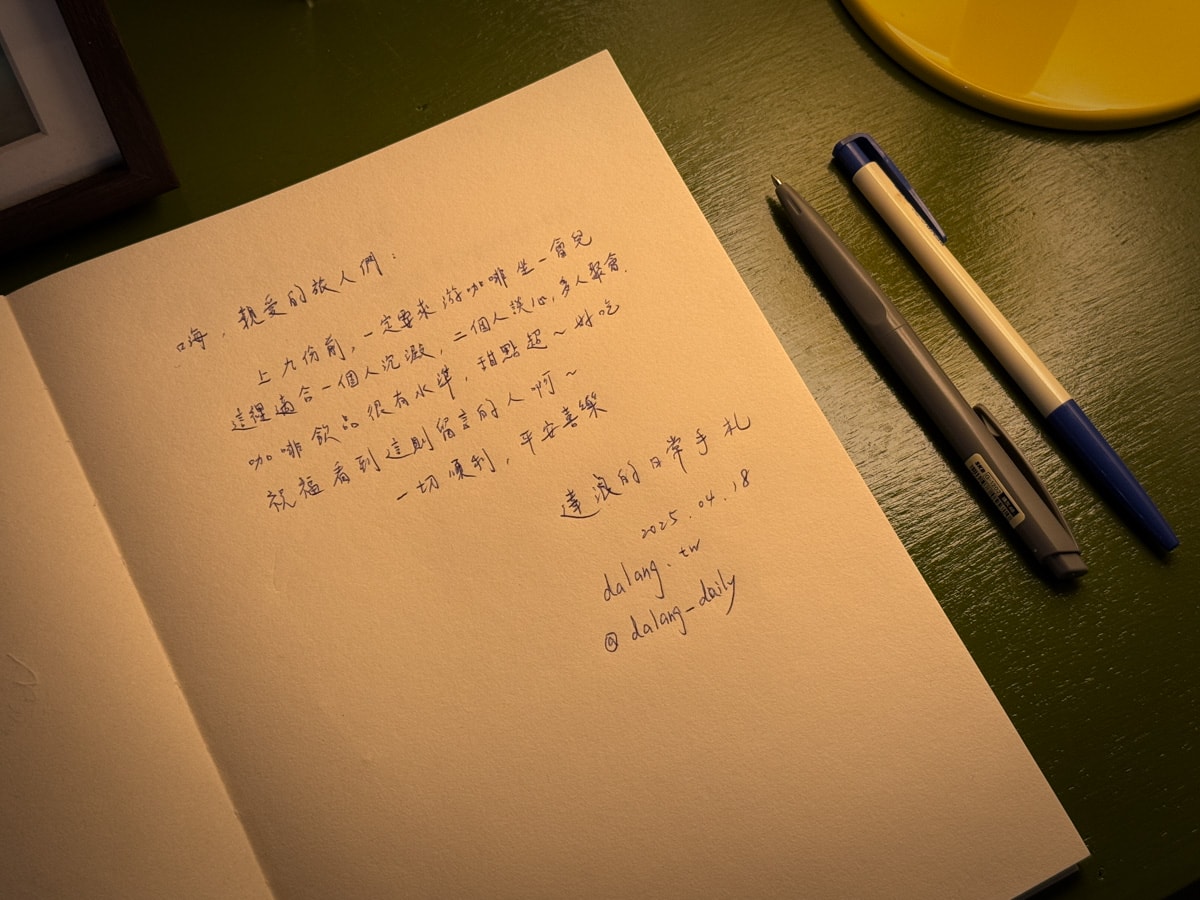 嗨，親愛的旅人們：
上九份前，一定要來游咖啡坐一會兒
這裡適合一個人沉澱，二個人談心，多人聚會.
咖啡飲品很有水準，甜點超～好吃
祝福看到這則留言的人啊～
一切順利，平安喜樂
達浪的日常手札
2025.04.18
dalang.tw
@dalang_daily